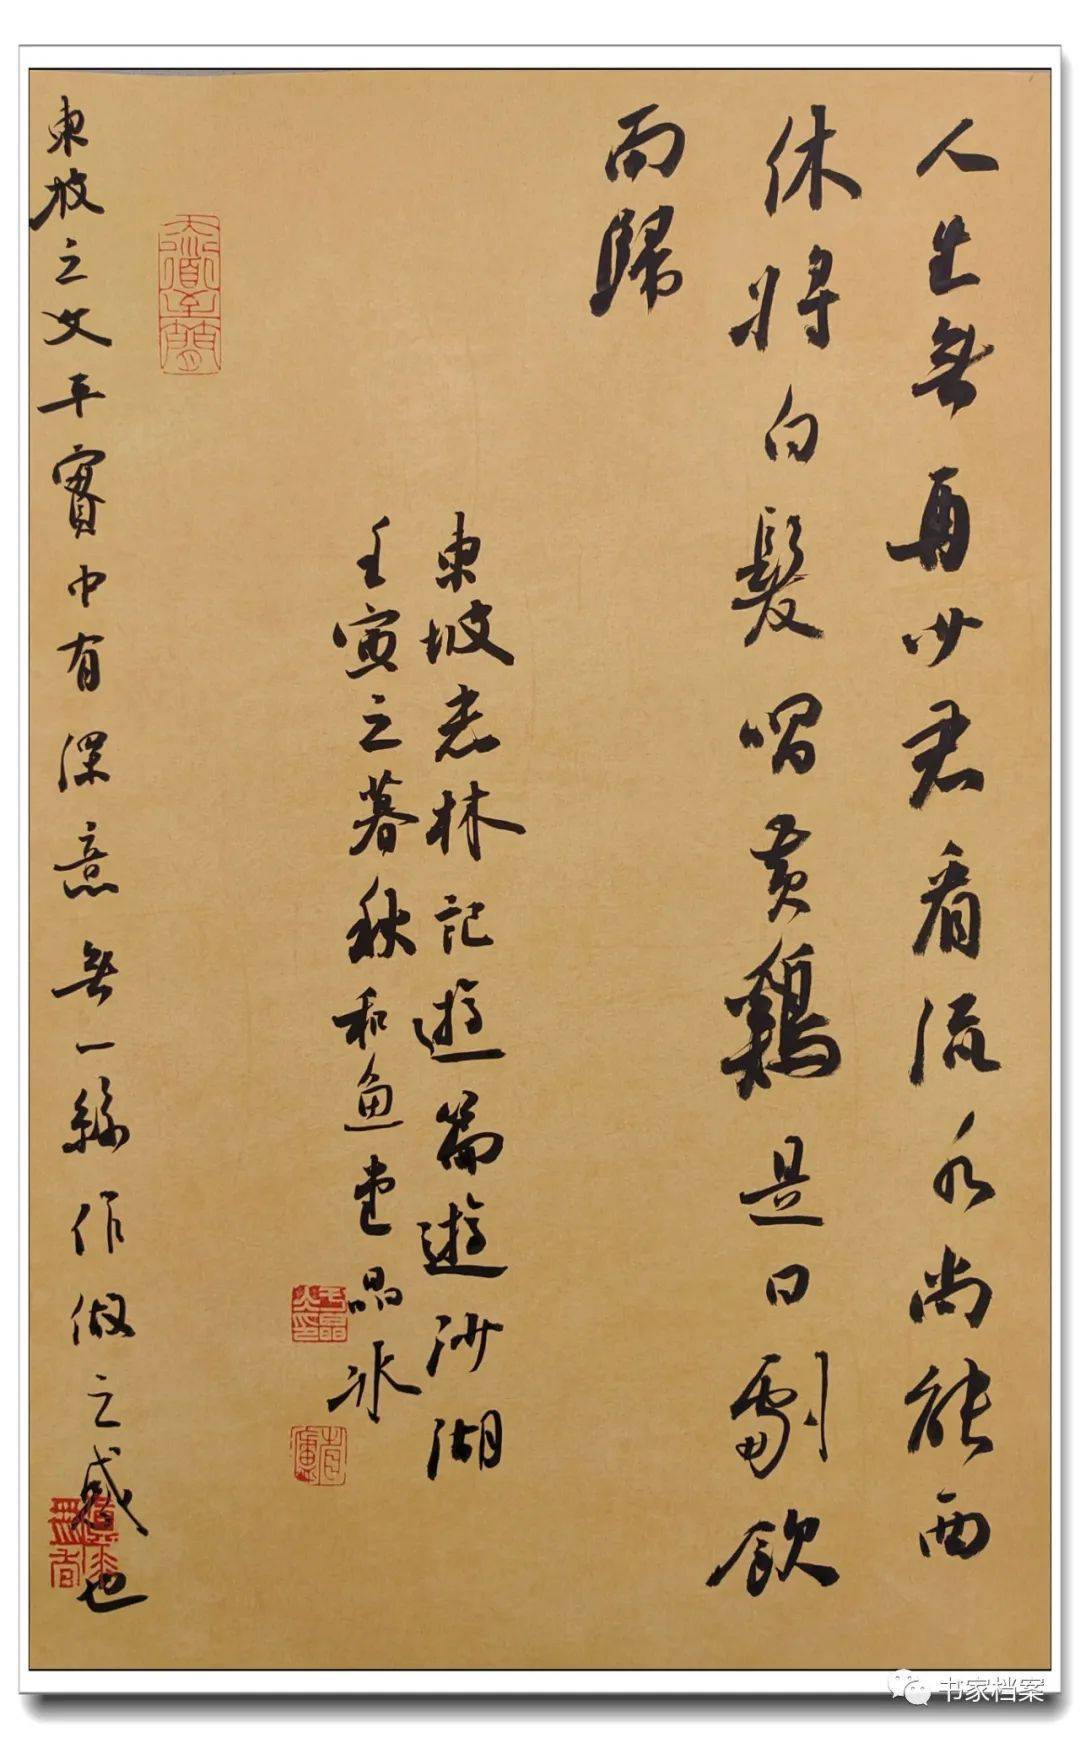 人生無再少君看流水尚能西
休將白髮唱黃鷄是日劇飲
而歸
東坡志林記遊篇遊沙湖
壬寅之暮秋和魚堂晶冰
東坡之文平實中有深意無一絲作做之感也
书家档案